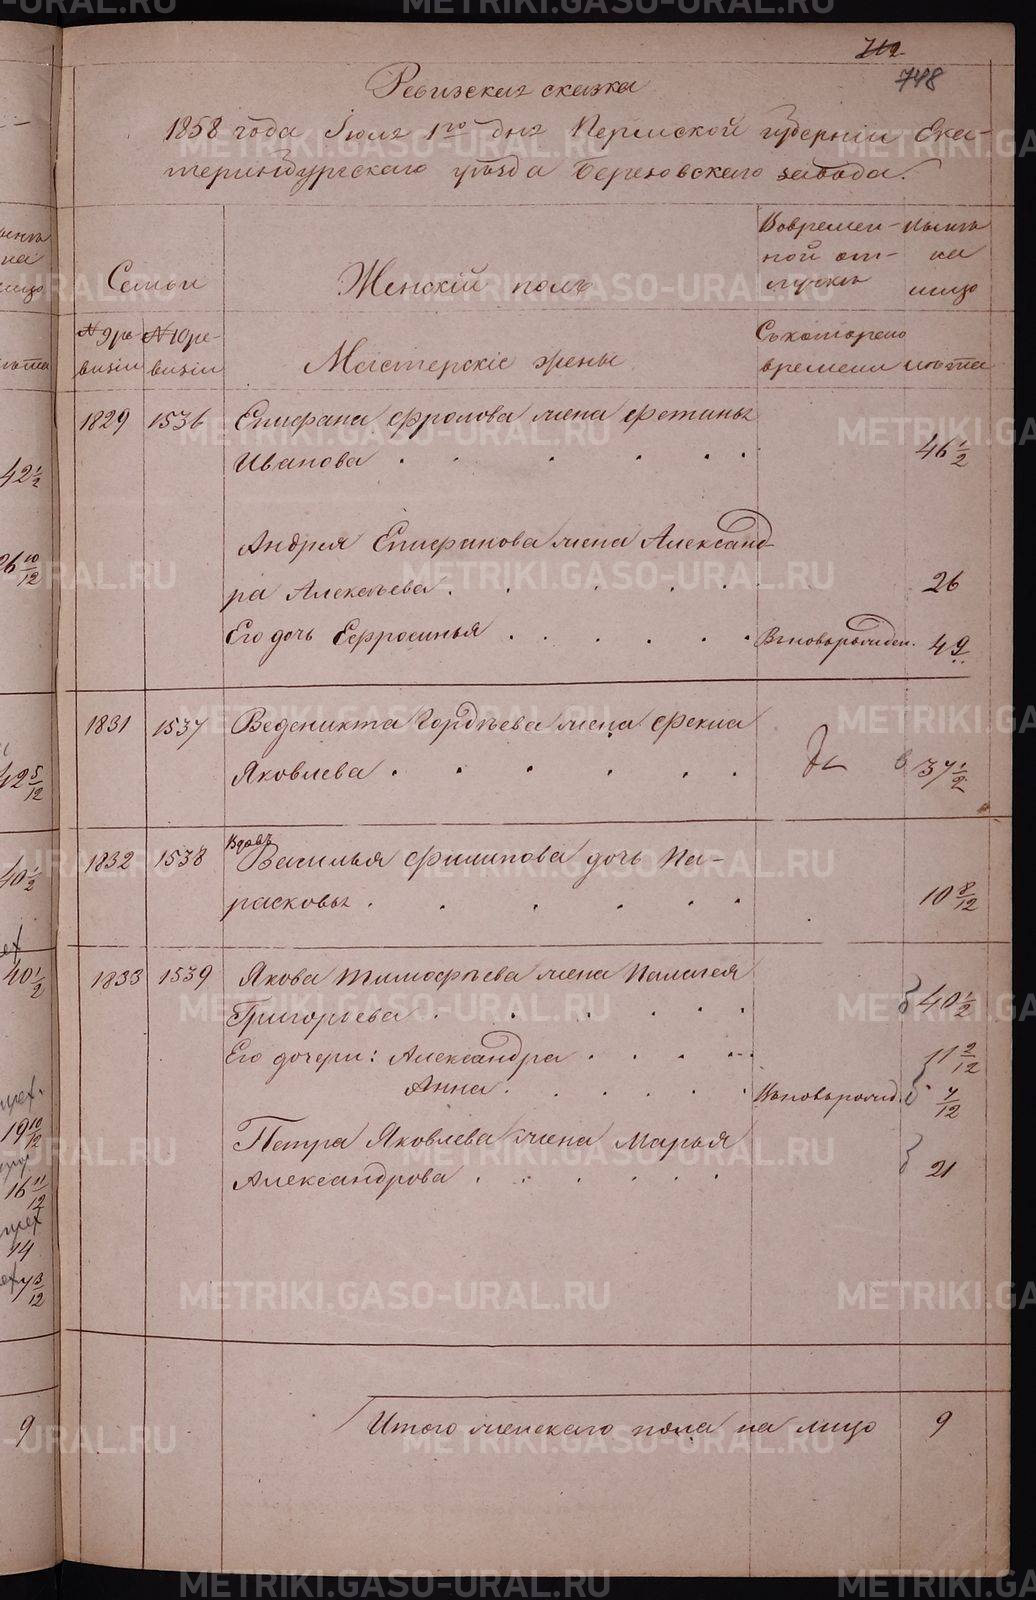 712
748
Ревизская сказка
1858 года Іюля 1го дня Пермской губерніи Ека-
теринбургскаго уѣзда Березовскаго завода.
Семьи
Женскій полъ
Вовремен-
ной от-
лучкѣ
нынѣ
на
лицо
№ 9 ре-
визіи
№ 10 ре-
визіи
Мастерскіе жены
Съкотораго
времени
лѣта
1829 1536 Епифана Фролова жена Фетинья
Иванова 46 1/2
Андрея Епифанова жена Александ-
ра Алексѣева 26
Его дочь Ефросинья Вновьрожден. 4
1831 1537 Веденикта Гордѣева жена Фекла
Яковлева 37 1/2
1832 1538 Вдовъ
Василья Филипова дочь Па-
расковья 10 8/12
1833 1539 Якова Тимофѣева жена Палагея
Григорьева 40 1/2
Его дочери: Александра 11 2/12
Анна Вновьрожд. 7/12
Петра Яковлева жена Марья
Александрова 21
Итого женскаго пола на лицо 9
42 1/2
26 10/12
42 5/12
40 1/2
40 1/2
19 10/12
16 11/12
14
7 3/12
9
METRIKI.GASO-URAL.RU